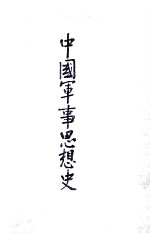 中國軍事思想史